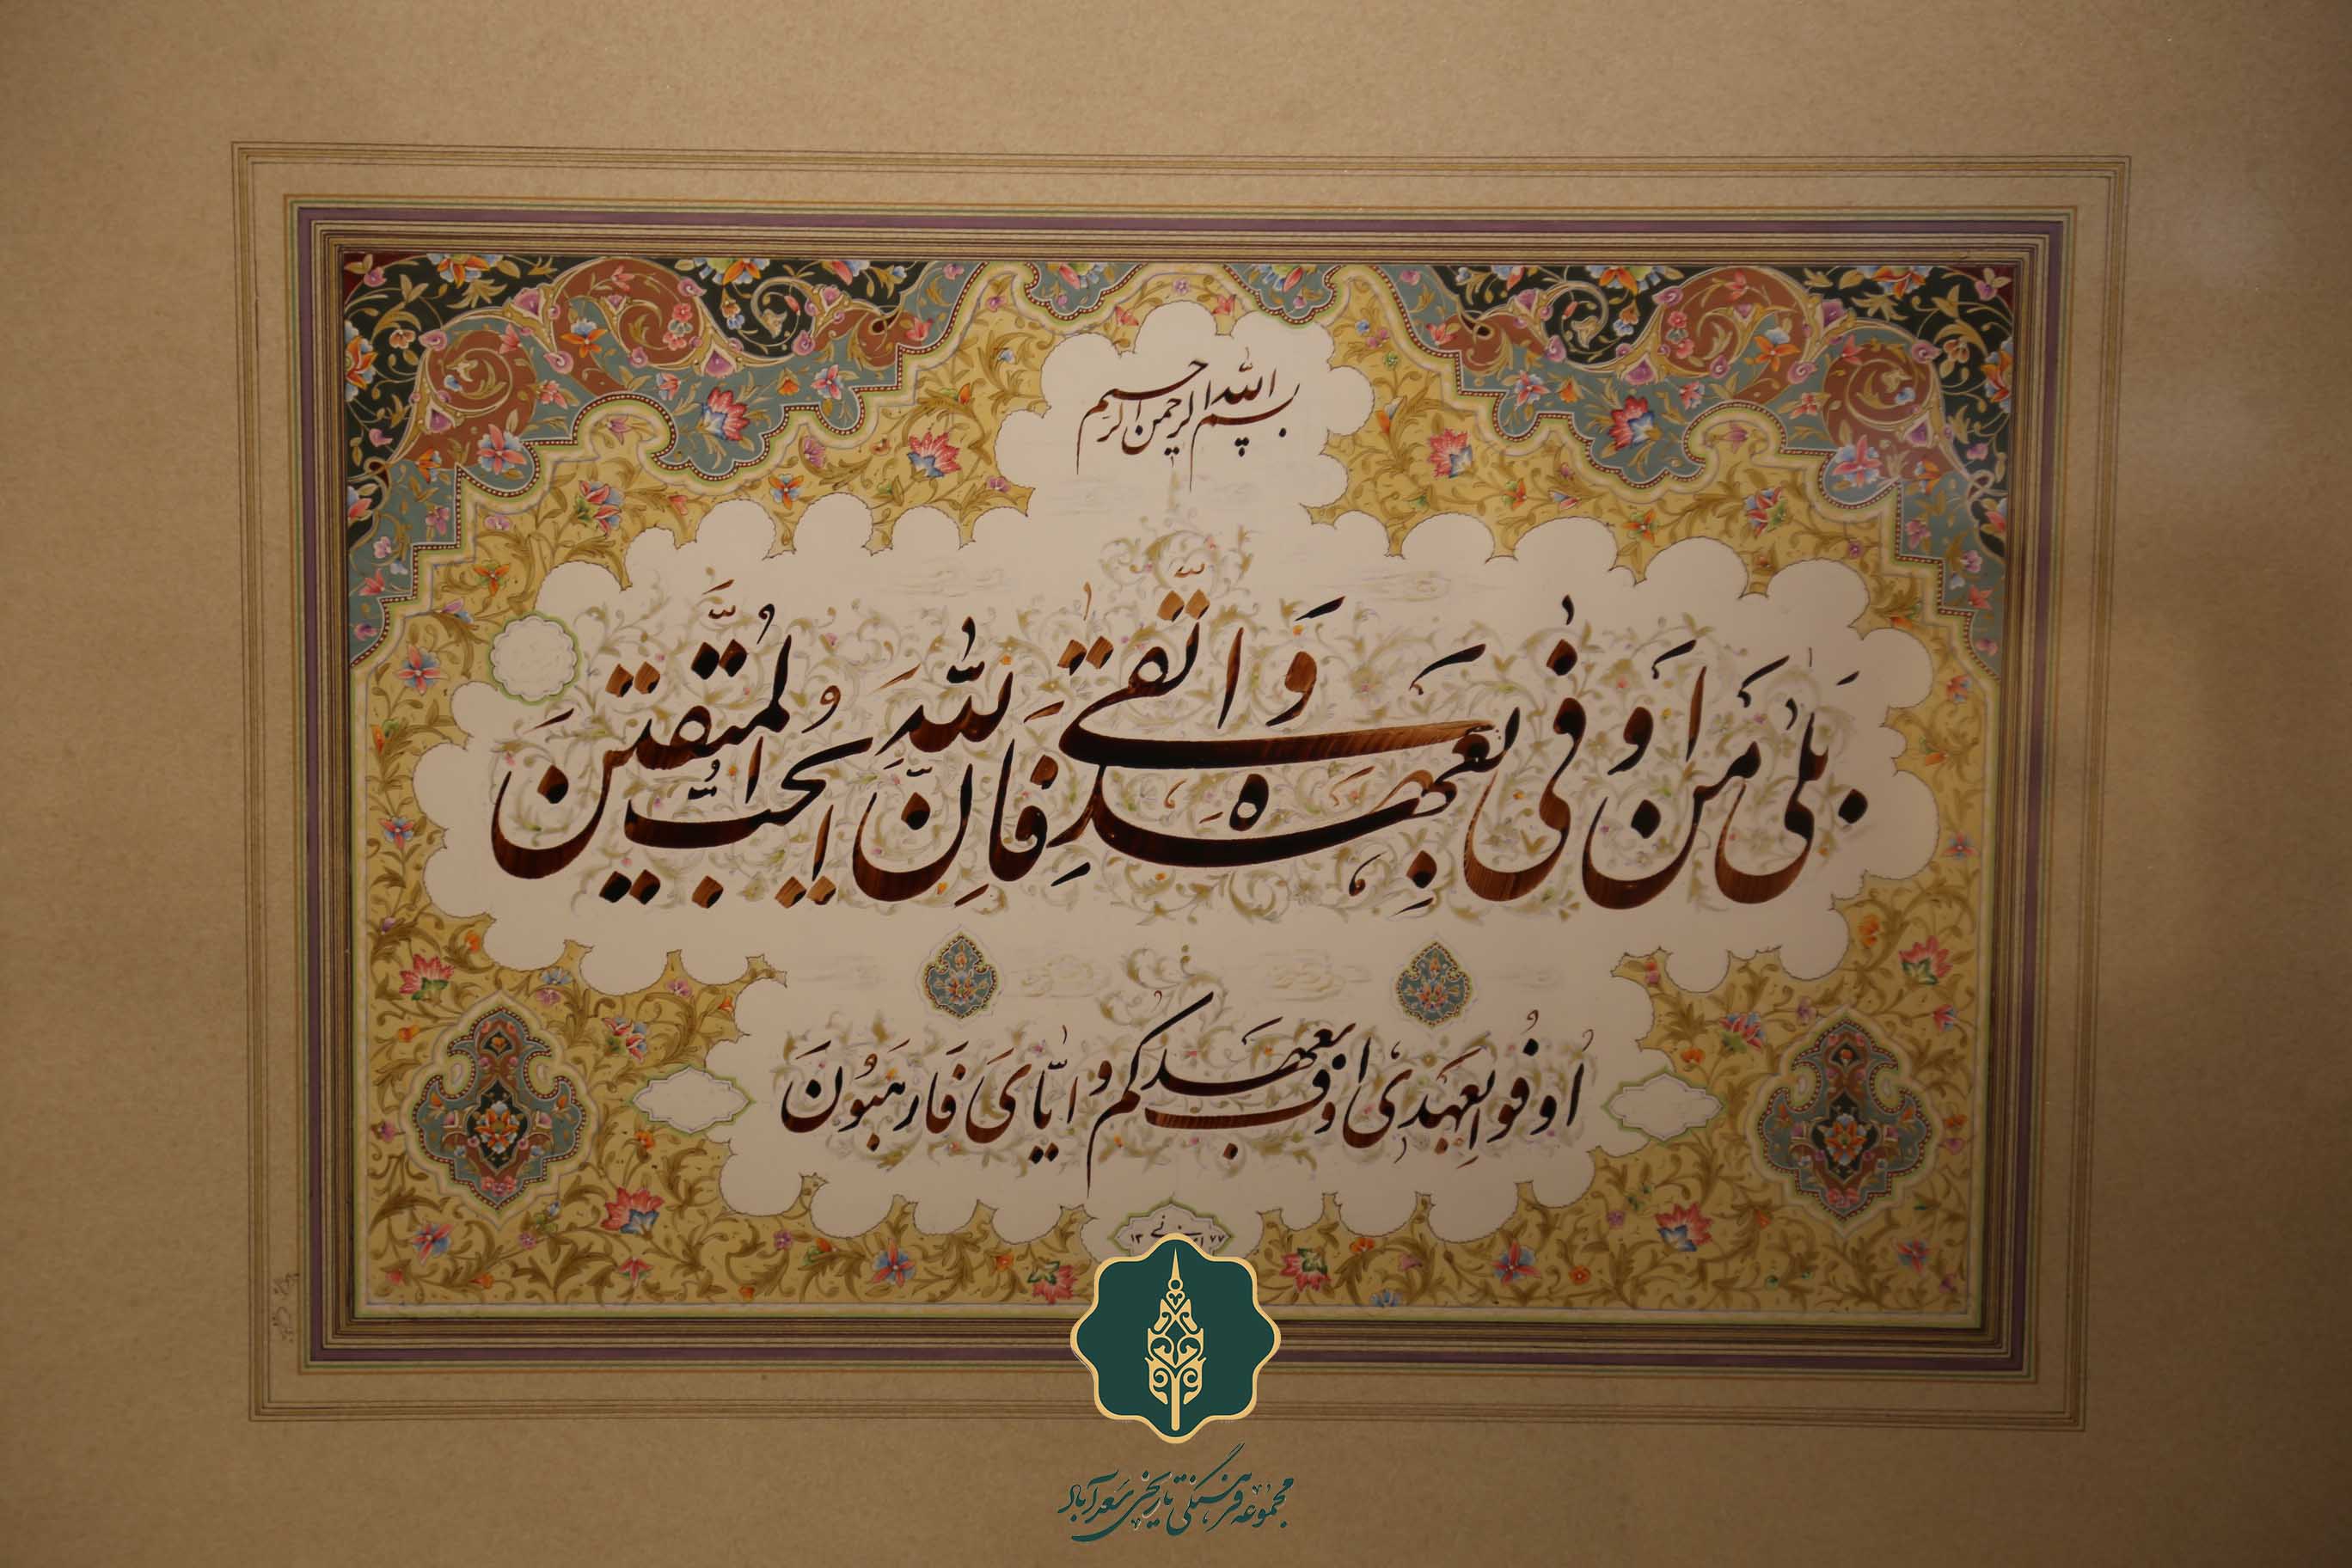 بسم الله الرحمن الرحیم
بَلٰی مَن اَوفٰی بِعَهدِهِ وَ اتَّقٰی فَاِنَّ اللّٰهَ یُحِبُّ المُتَّقینَ
اُوفُوا بِعَهدَی اوف بعَهدکم و ایّایَ فَارهَبُونَ
۱۳۷۷
مجموعه فرهنگی تاریخی سعدآباد